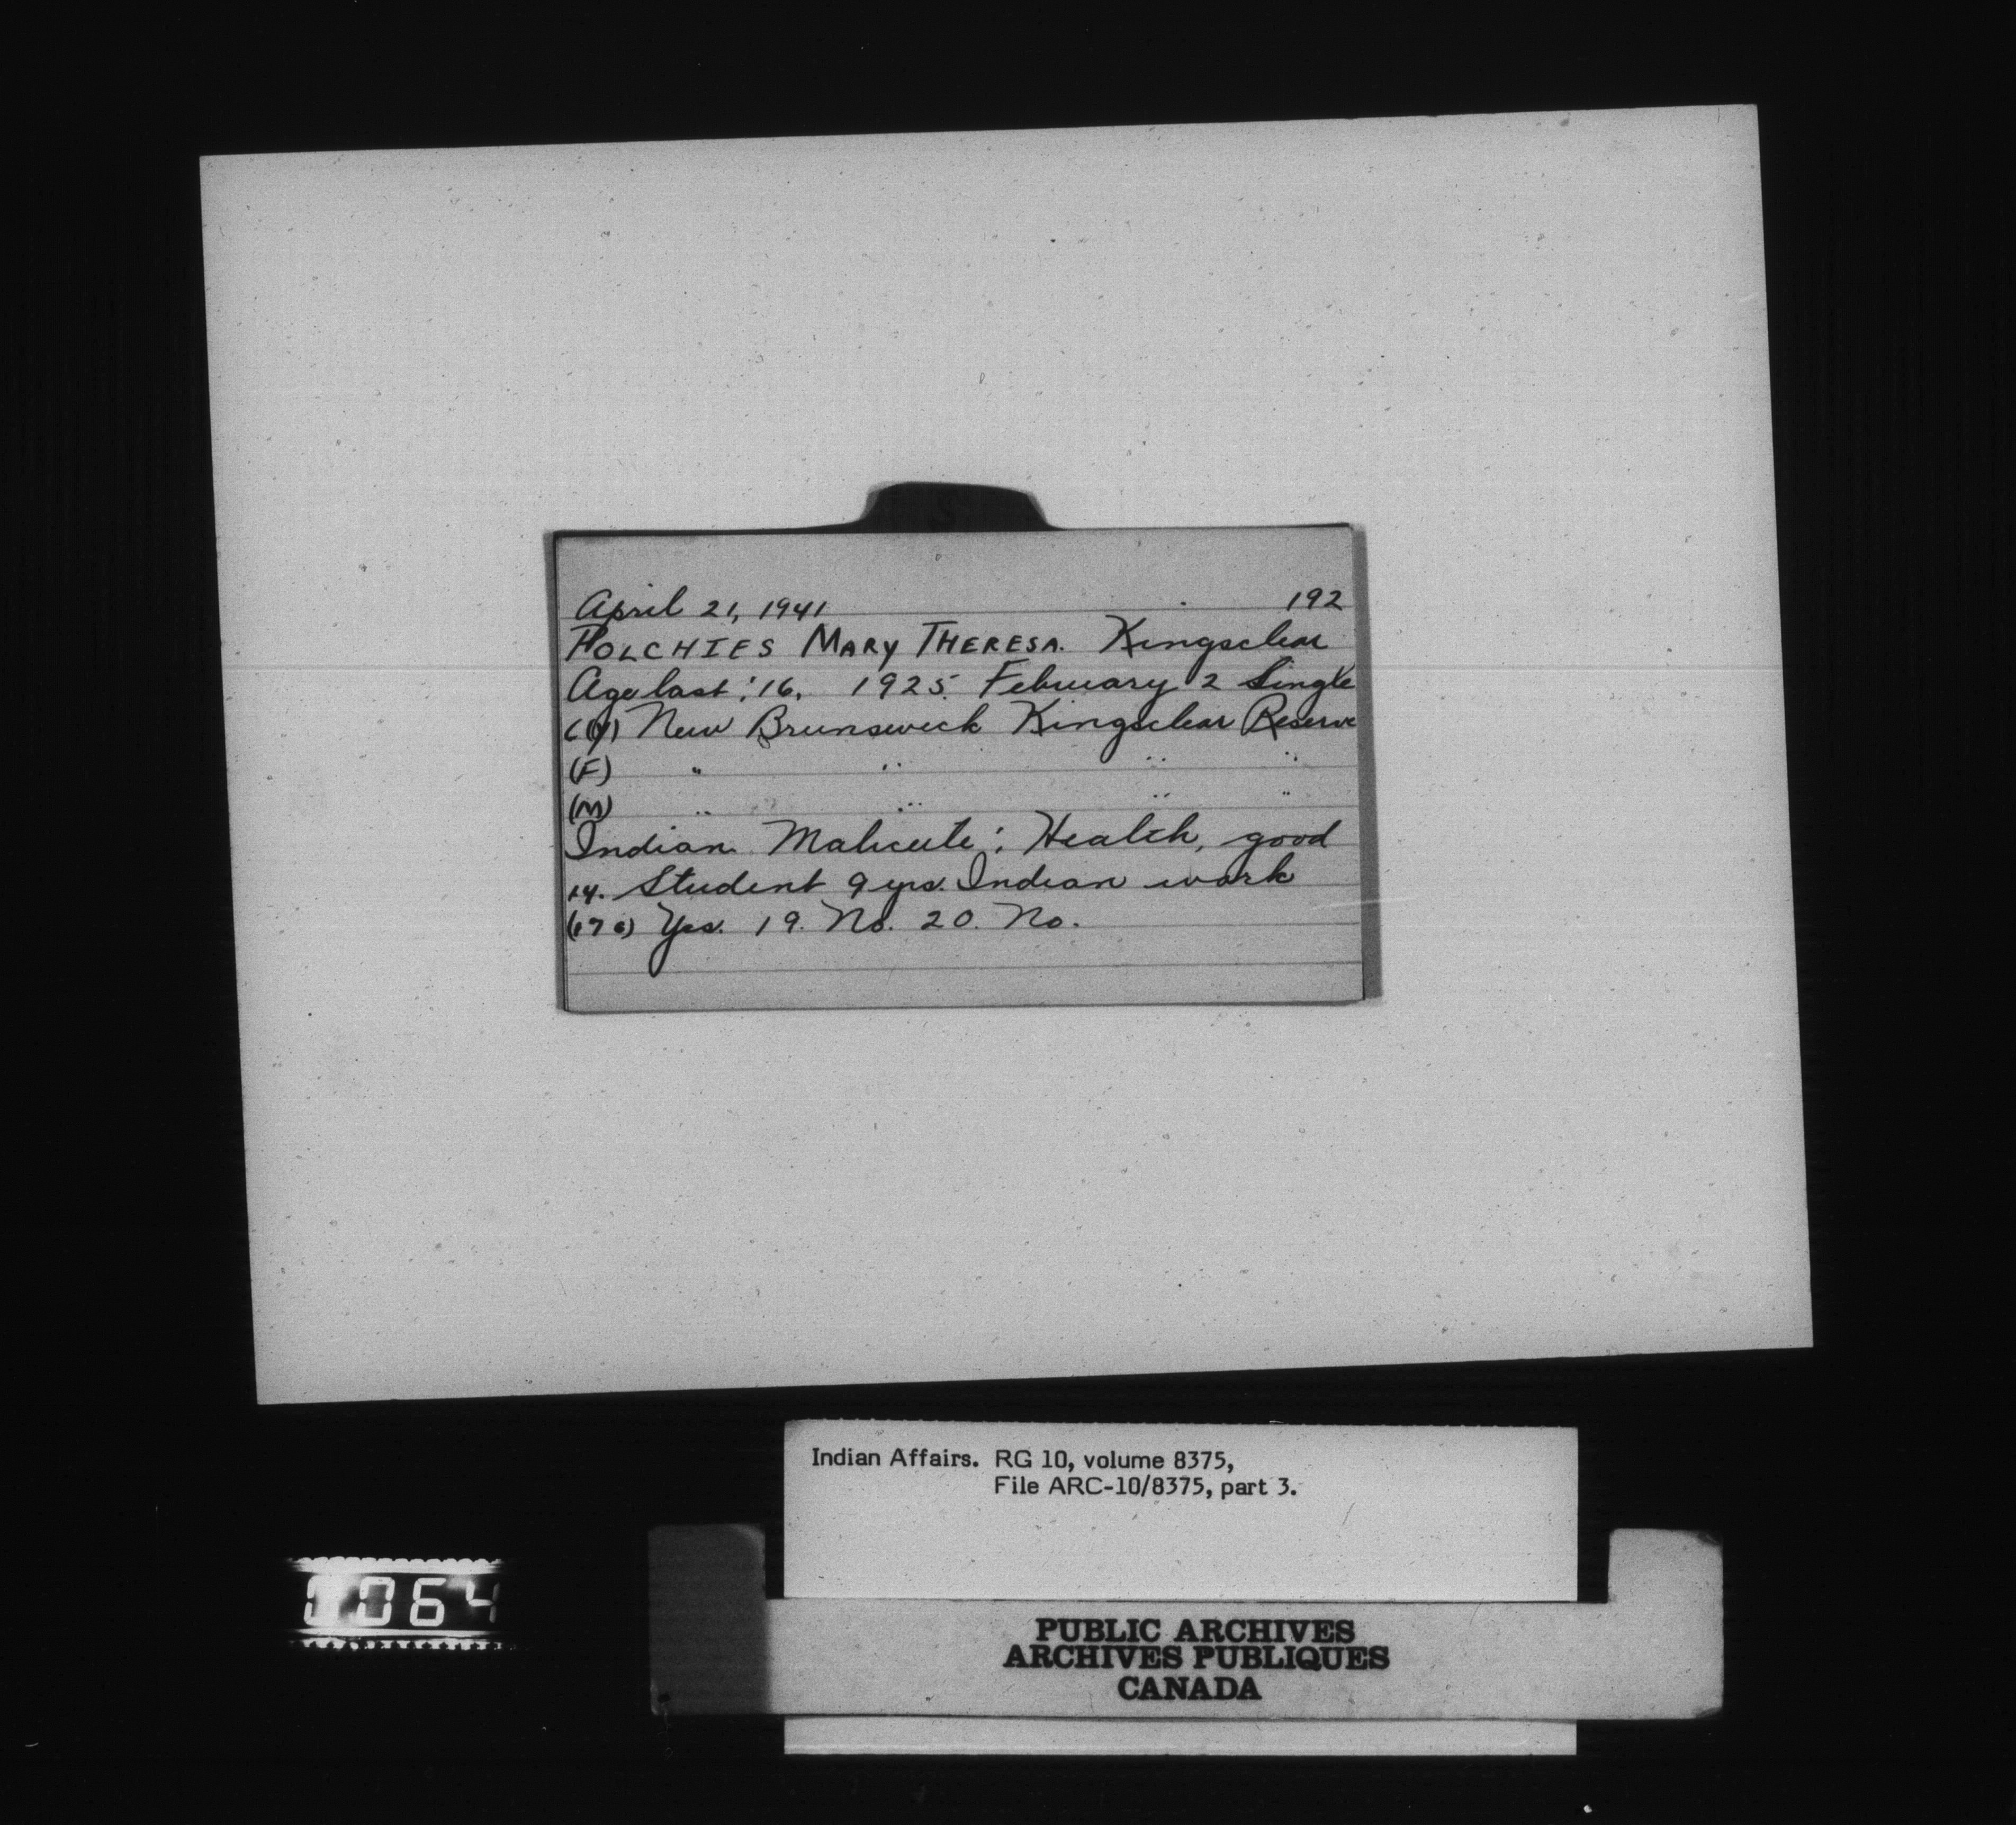 S
April 21, 1941 192
POLCHIES MARY THERESA. Kingsclear
Age last: 16, 1925. February 2 Single
6(Y) New Brunswick Kingsclear Reserve
(F) " " " "
(M) " " " "
Indian Malicite: Health, good
14. Student 9 yrs. Indian work
(17c) Yes. 19. No. 20. No.
Indian Affairs. RG 10, volume 8375,
File ARC-10/8375, part 3.
0064
PUBLIC ARCHIVES
ARCHIVES PUBLIQUES
CANADA